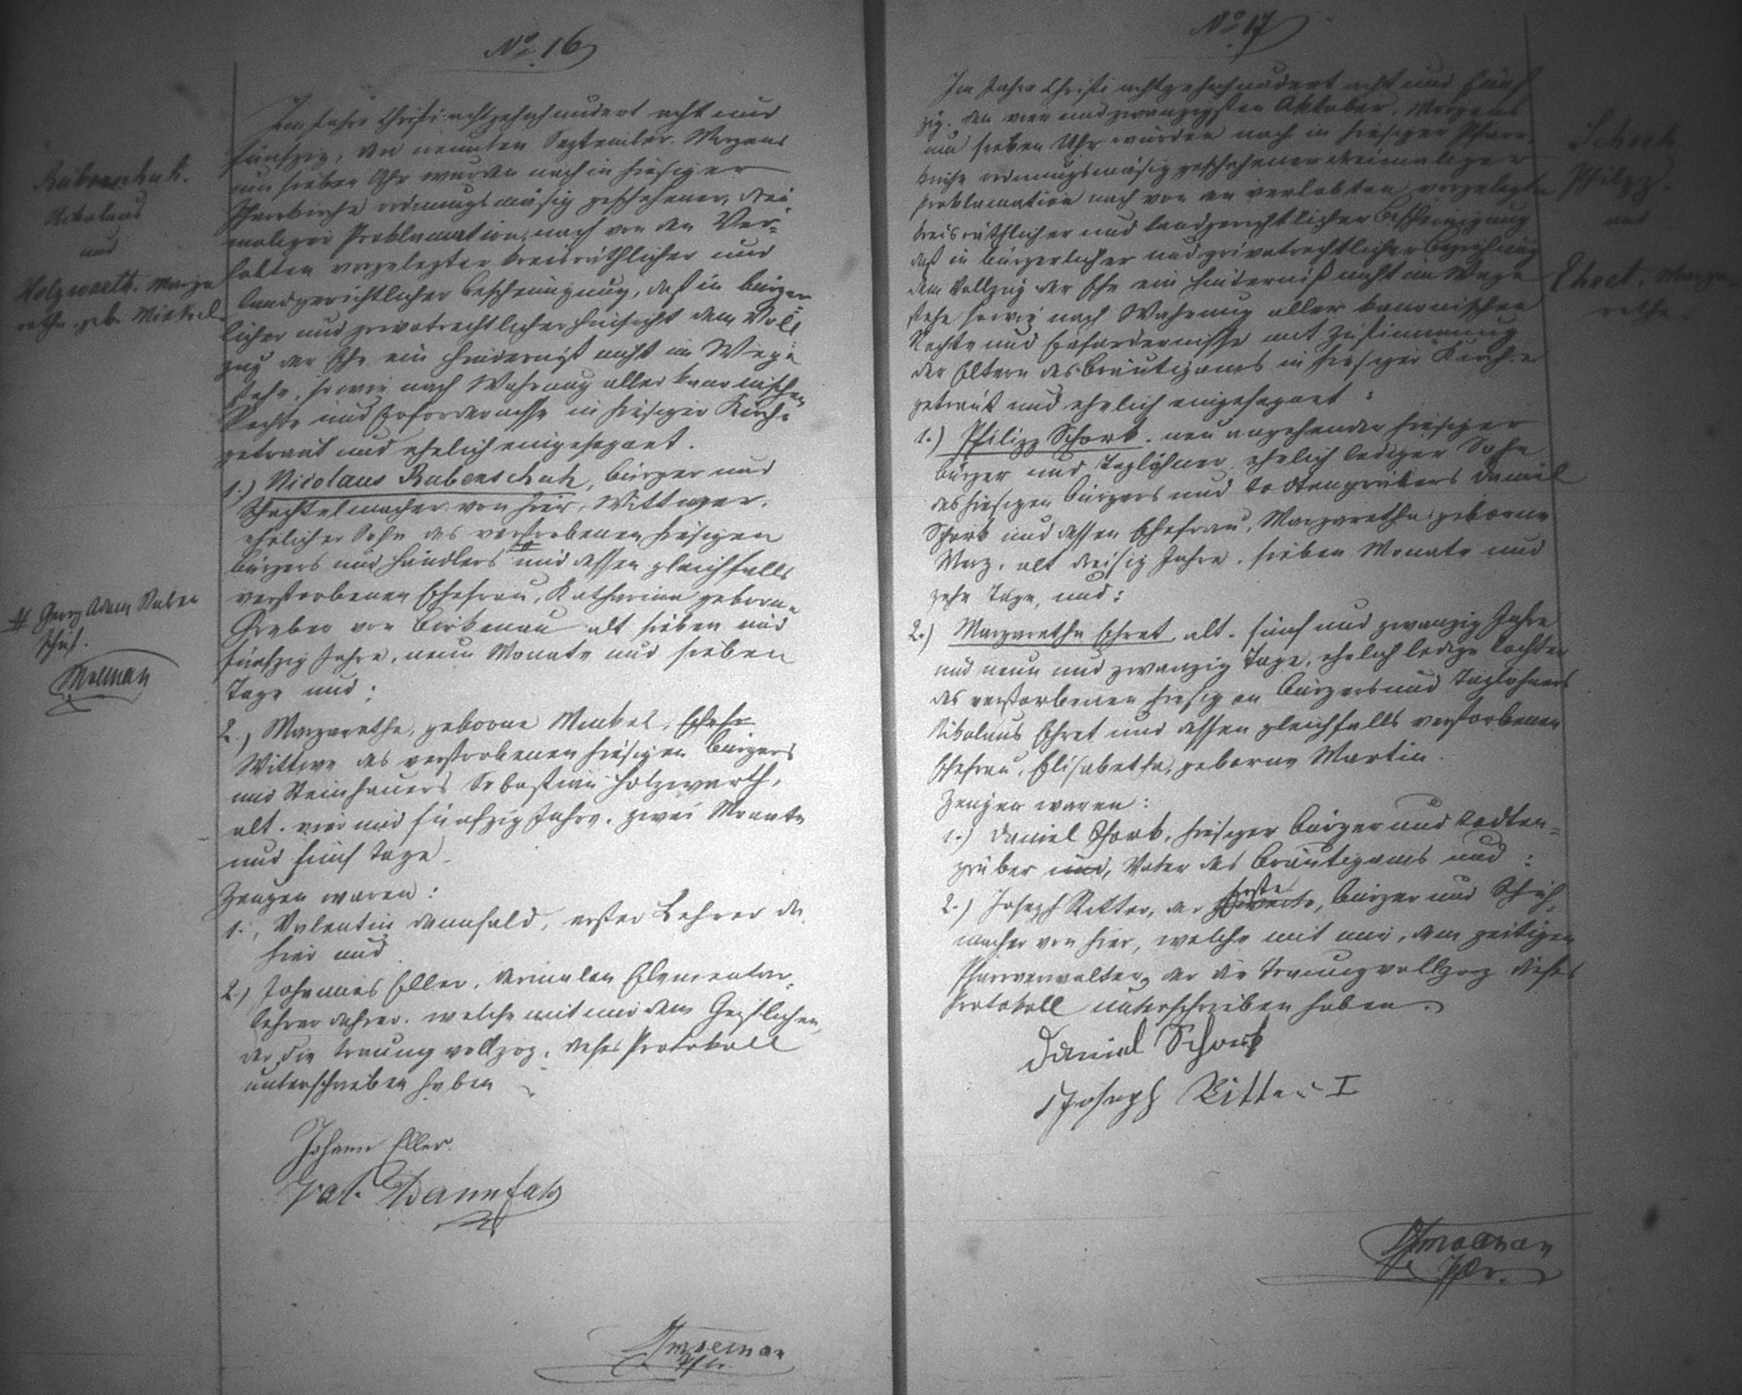 No. 16
Im Jahre Christi achtzehnhundert acht und
fünfzig, den neunten September Morgens
um sieben Uhr wurden nach in hiesiger
Pfarrkirche ordnungsmäsig geschehener, drei
maliger Proklamation, nach von den Ver-
lobten vorgelegter kreisräthlicher und
landgerichtlicher Bescheinigung, daß in bürger
licher und privatrechtlicher Hinsicht dem Voll
zug der Ehe ein Hinderniß nicht im Wege
stehe, sowie nach Wahrung aller kanonischen
Rechte und Erfordernisse in hiesiger Kirche
getraut und ehelich eingesegnet.
1.) Nicolaus Rabenschuh, Bürger und
Schachtelmacher von hier, Wittwer,
ehelicher Sohn des verstorbenen hiesigen
Bürgers und Händlers # und dessen gleichfalls
verstorbenen Ehefrau, Katharina geborne
Graber von Birkenau alt sieben und
fünfzig Jahre, neun Monate und sieben
Tage und:
2.) Margarethe, geborne
Wittwe des verstorbenen hiesigen Bürgers
und Steinhauers Sebastian Holzwarth,
alt. vier und fünfzig Jahre, zwei Monate
und fünf Tage.
Zeugen waren:
1., Valentin Dannfald, erster Lehrer da
hier und
2.) Johannes Eller, dermalen Elementar-
lehrer daher. welche mit mir dem Geistlichen,
der die Trauung vollzog, dieses Protokoll
unterschrieben haben
Johann Eller.
Val. Dannfald
Rabenschuh.
Nikolaus
und
Holzwarth. Marga
rethe. geb.
# Georg Adam Raben
schuh.
No. 17
Im Jahre Christi achtzehnhundert acht und fünf
zig, den vier und zwanzigsten Oktober, Morgens
um sieben Uhr wurden nach in hiesiger Pfarr-
kirche ordnungsmäsig geschehener dreimaliger
Proklamation nach von den Verlobten vorgelegter
kreisräthlicher und landgerichtlicher Bescheinigung
daß in bürgerlicher und privatrechtlicher Beziehung
dem Vollzug der Ehe ein Hinderniß nicht im Wege
stehe sowie nach Wahrung aller kanonischen
Rechte und Erfordernisse mit Zustimmung
der Eltern des Bräutigams in hiesiger Kirche
getraut und ehelich eingesegnet:
1.) Philipp Schork, neu angehender hiesiger
Bürger und Taglöhner, ehelich lediger Sohn
des hiesigen Bürgers und Todtengräbers Daniel
Schork und dessen Ehefrau, Margaretha geborne
alt dreisig Jahre, sieben Monate und
zehn Tage, und:
2.) Margaretha Ehret alt. fünf und zwanzig Jahre
und neun und zwanzig Tage, ehelich ledige Tochter
des verstorbenen hiesigen Bürgers und Taglöhners
Nikolaus Ehret und dessen gleichfalls verstorbenen
Ehefrau, Elisabetha, geborne Martin.
Zeugen waren:
1.) Daniel Schork, hiesiger Bürger und Todten-
gräber und, Vater des Bräutigams und:
2.) Joseph Ritter, der Erste, Bürger und Schuh-
macher von hier, welche mit mir, dem zeitigen
Pfarrverwalter, der die Trauung vollzog dieses
Protokoll unterschrieben haben.
Daniel Schork
Joseph Ritter I
Schork
Philipp.
und
Ehret. Marga-
retha.